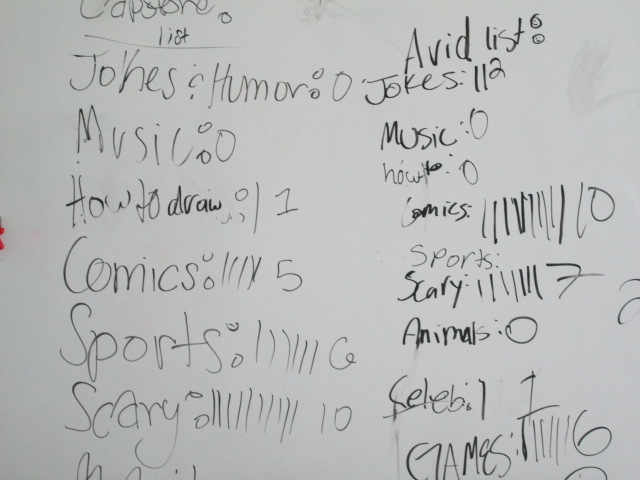 Capstone:
list
Jokes & Humor: 0
Music: 0
How to draw: | 1
Comics: ||||| 5
Sports: |||||| 6
Scary: |||||||||| 10
Avid list:
Jokes: || 2
Music: 0
how to: 0
Comics: |||||||||| 10
Sports:
Scary: ||||||| 7
Animals: 0
Celeb: | 1
GAMES: |||||| 6